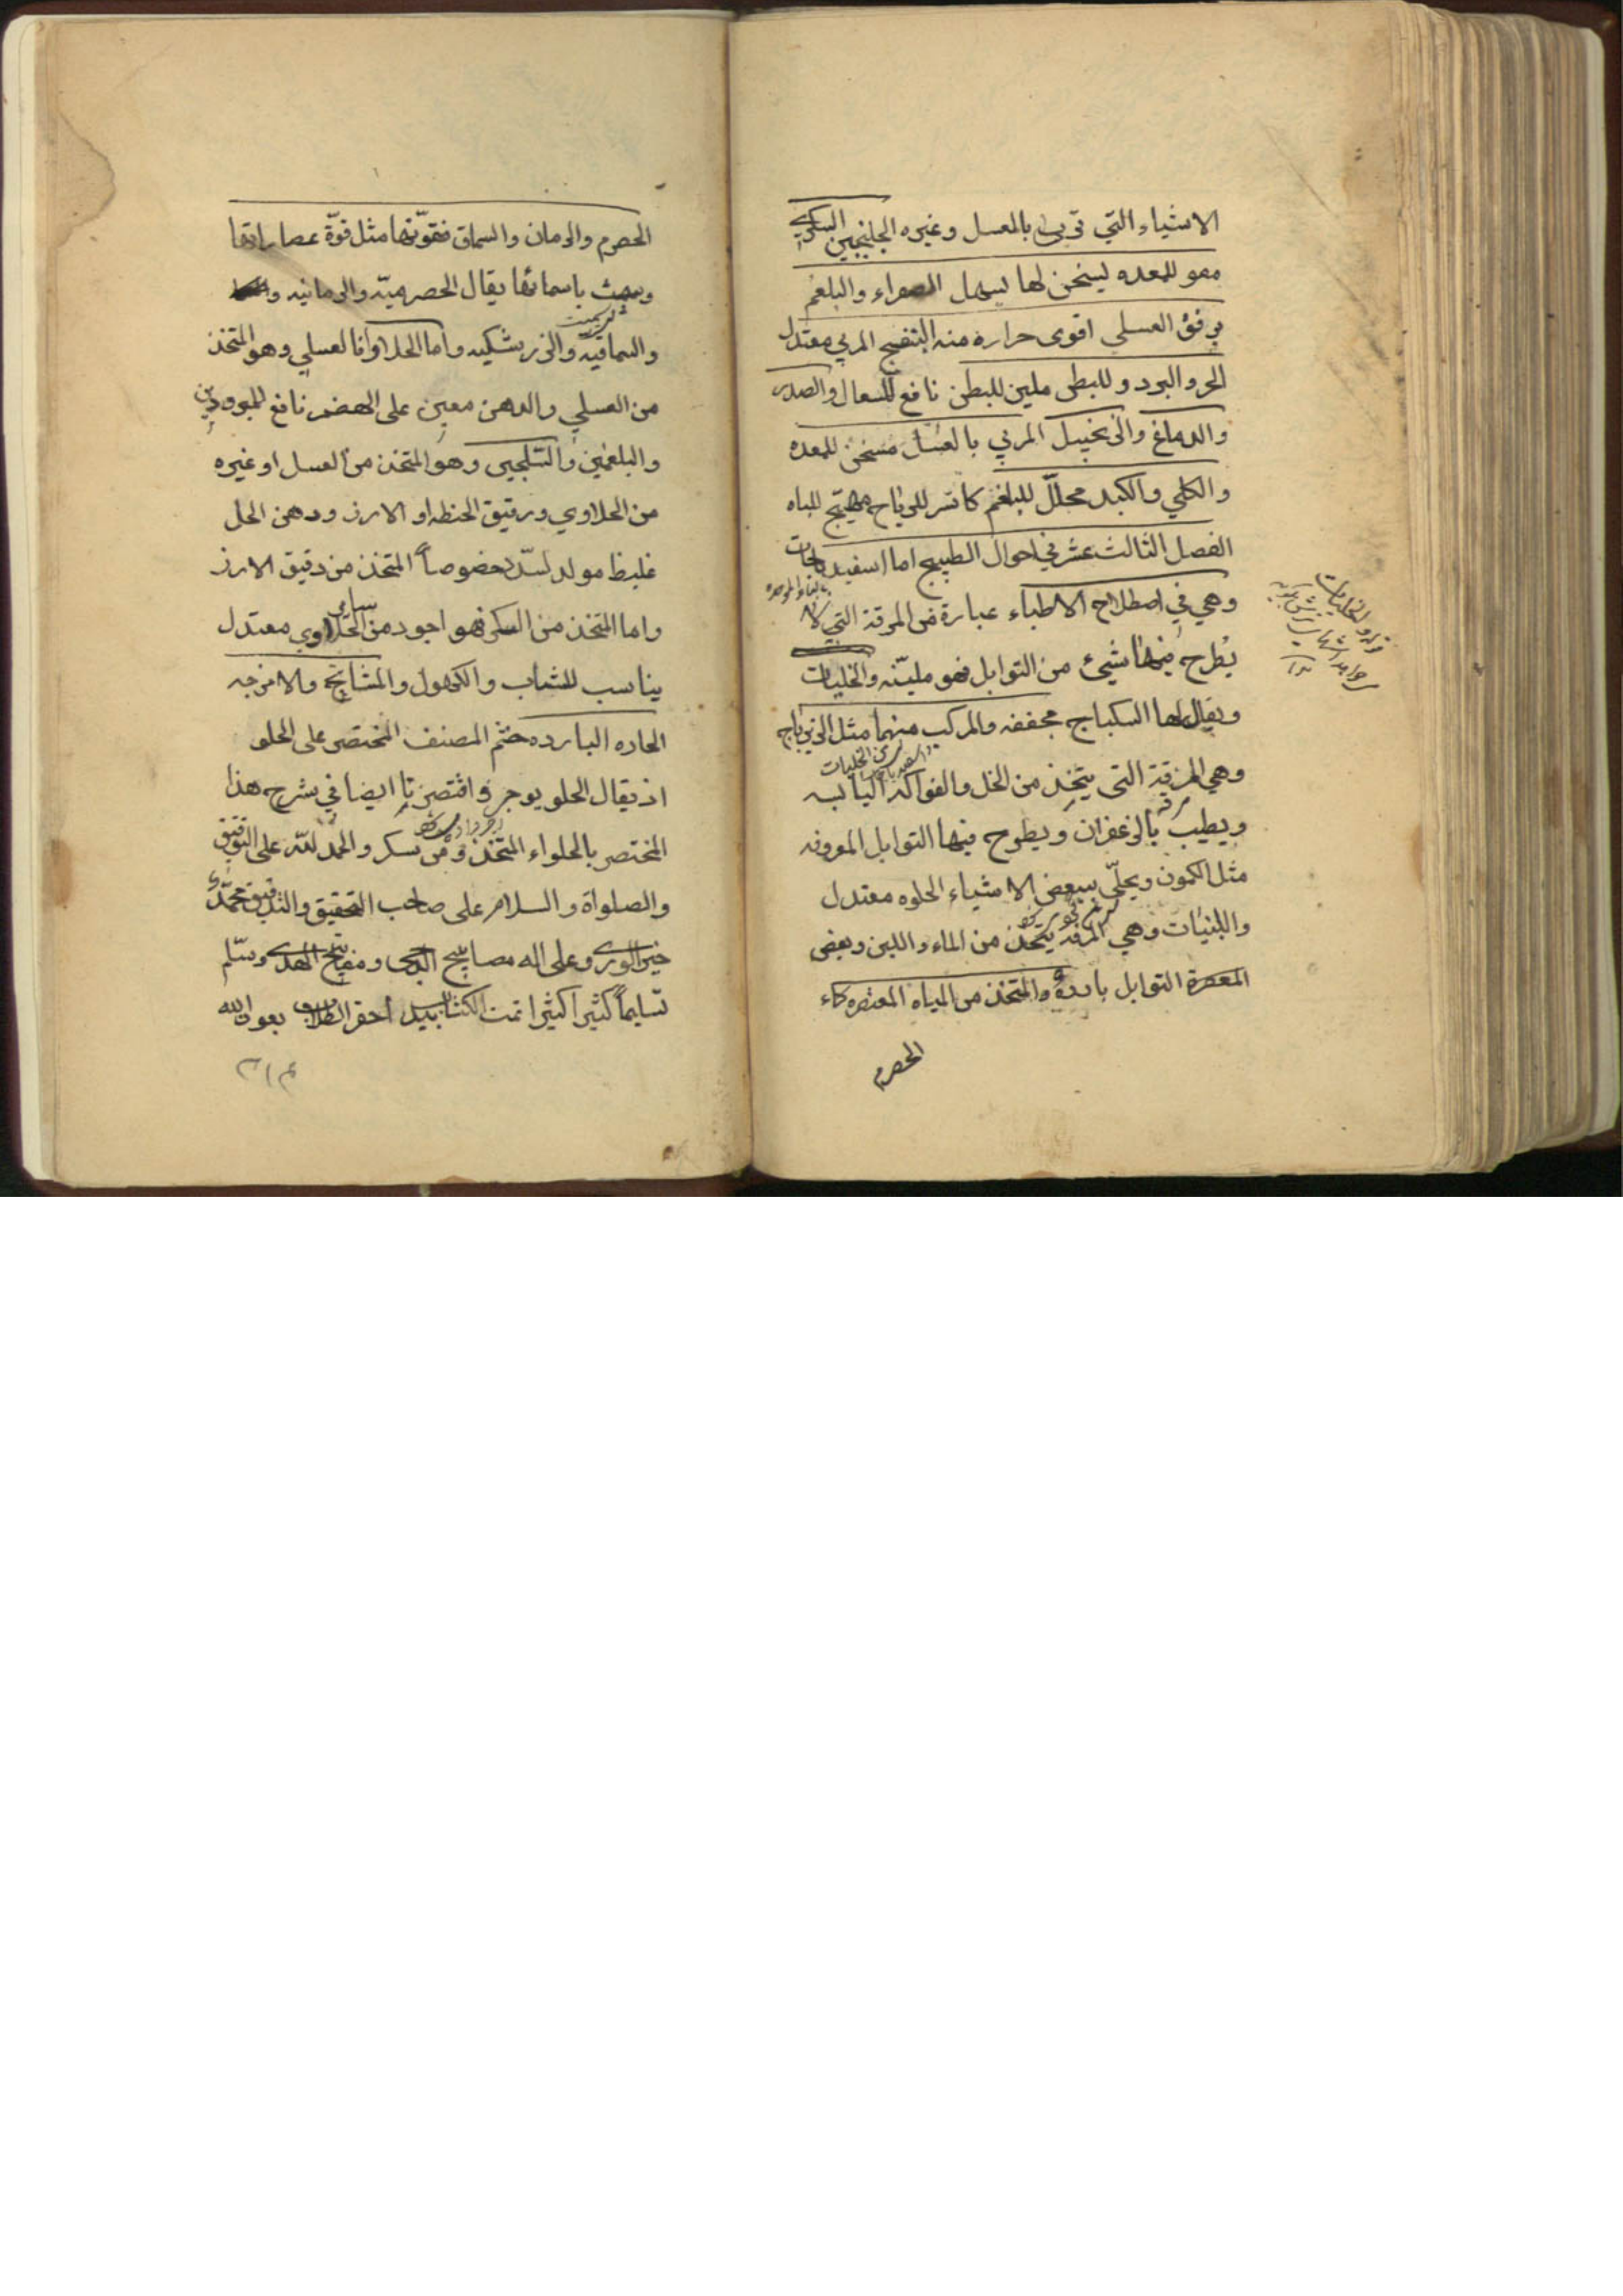 الاشياء التي تربى بالعسل وغيره الجلنجبين السكري
مقو للمعده ليسخن لها يسهل الصفراء والبلغم
برفق العسلي اقوى حرارة منه البنفسج المربي معتدل
الحر والبرد وللبطن ملين للبطن نافع للسعال والصدر
والدماغ والزنجبيل المربي بالعسل مسخن للمعده
والكلي والكبد محلّل للبلغم كاسر للرياح مهيّج للباه
الفصل الثالث عشر في احوال الطبيخ اما اسفيدباجات
بالباء الموحده
وهي في اصطلاح الاطباء عبارة من المرقة التي لا
يُطرح فيها شيئ من التوابل فهو مليّنه والخليات
ويقال لها السكباج مجففه والمركب منهما مثل الزيرباج
من الخليات
وهي المرقة التي يتخذ من الخل والفواكه اليابسه
ويطيب بالزعفران ويطرح فيها التوابل المعروفه
مثل الكمون ويحلّي ببعض الاشياء الحلوه معتدل
واللبنيات وهي المرقه يتخذ من الماء واللبن وبعض
التوابل بارده والمتخذ من المياه المعتصره كماء
الحصرم
الحصرم والرمان والسماق فقوّتها مثل قوّة عصاراتها
وسميت باسمائها يقال الحصرميّه والرمانيه
والسماقيّه والزرشكيه واما الحلاوا فالعسلي وهو المتخذ
من العسلي والدهن معين على الهضم نافع للمبرودين
والبلغمين وهو المتخذ من العسل او غيره
من الحلاوي ودقيق الحنطه او الارز ودهن الحل
غليظ مولد لسدّد خصوصاً المتخذ من دقيق الارز
واما المتخذ من السكر فهو اجود من سائر الحلاوي معتدل
يناسب للشاب والكهول والمشايخ والامزجه
الحاره البارده ختم المصنف المختصر على الحلو
اذ يقال الحلو يوجر واقتصرنا ايضا في شرح هذا
المختصر بالحلواء المتخذ من سكر والحمد للّه على التوفيق
والصلواة والسلام على صاحب التحقيق والتدقيق محمّد
خير الورى وعلى اله مصابيح الدجى ومفاتيح الهدى وسلّم
تسليماً كثيرا كثيرا تمت الكتاب بيد احقر الطلاب بعون الله